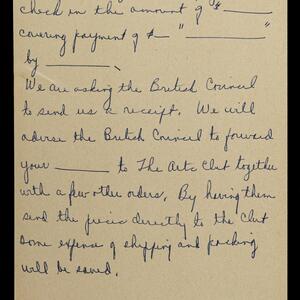 check in the amount of $ ______
covering payment of $— "__________"
by ______.
We are asking the British Council
to send us a receipt. We will
advise the British Council to forward
your ______ to The Arts Club together
with a few other orders. By having them
send the pieces directly to the Club
some expense of shipping and packing
will be saved.